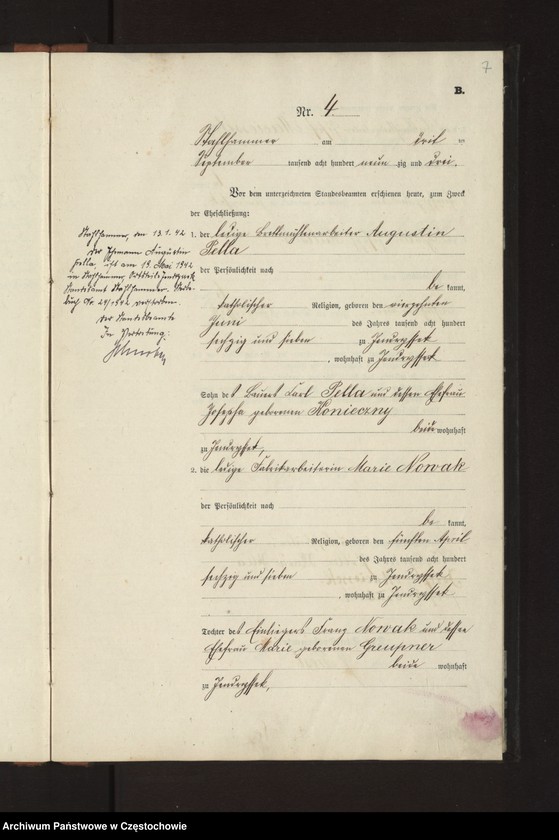 7
B.
Nr. 4
Stahlhammer am
September tausend acht hundert neun zig und drei.
Vor dem unterzeichneten Standesbeamten erschienen heute, zum Zweck
der Eheschließung:
1. der ledige Brettmühlenarbeiter Augustin
Pella
der Persönlichkeit nach
be kannt,
katholischer Religion, geboren den vierzehnten
Juni des Jahres tausend acht hundert
sechzig und sieben zu Jendrysset
, wohnhaft zu Jendrysset
Sohn des Bauers Carl Pella und dessen Ehefrau
Josepha geborenen Konieczny
beide wohnhaft
zu Jendrysset,
2. die ledige Fabrikarbeiterin Marie Nowak
der Persönlichkeit nach
be kannt,
katholischer Religion, geboren den fünften April
des Jahres tausend acht hundert
sechzig und sieben zu Jendrysset
, wohnhaft zu Jendrysset
Tochter des Einliegers Franz Nowak und dessen
Ehefrau Marie geborenen Greupner
beide wohnhaft
zu Jendryssek,
Stahlhammer, den 13.1.42
Der Ehemann Augustin
Pella, ist am 13. 1942
in Stahlhammer,
Standesamt Stahlhammer.
buch Nr. verstorben.
Der Standesbeamte
In Vertretung:
Archiwum Państwowe w Częstochowie